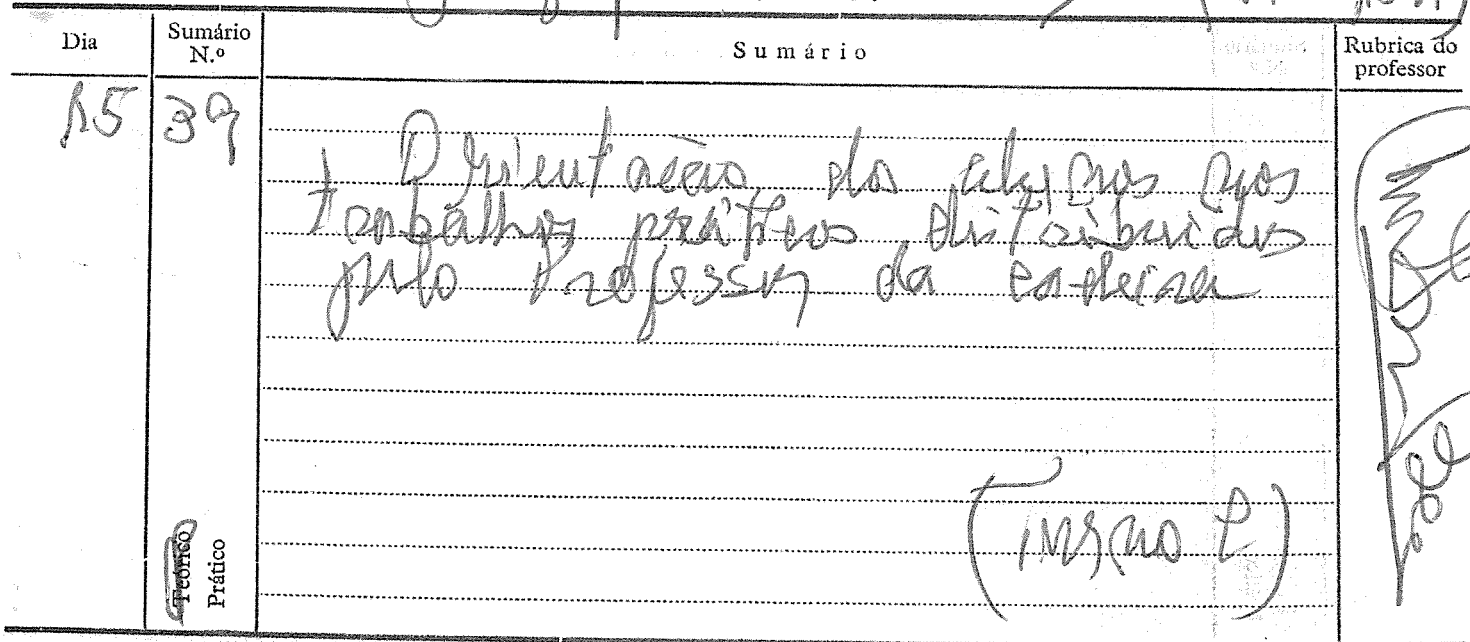 Dia
Sumário
N.º
Sumário
Rubrica do
professor
15
39
Orientação dos alunos nos
trabalhos práticos distribuídos
pelo Professor da cadeira
Teórico
Prático
(Turno